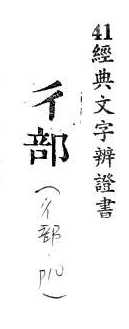 41經典文字辨證書
彳部
(彳部．p10)